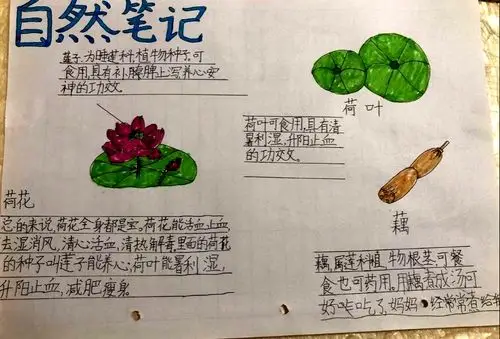 自然笔记
莲子,为睡莲科植物种子,可
食用,具有补脾止泻养心安
神的功效
荷叶
荷叶可食用,具有清
暑利湿,升阳止血
的功效。
藕
荷花
总的来说,荷花全身都是宝。荷花能活血止血,
去湿消风,清心活血,清热解毒,里面的荷花
的种子叫莲子能养心;荷叶能暑利湿,
升阳止血,减肥瘦身。
藕,属莲种植物根茎,可餐
食也可药用。用藕煮成汤可
好吃了,妈妈经常煮给